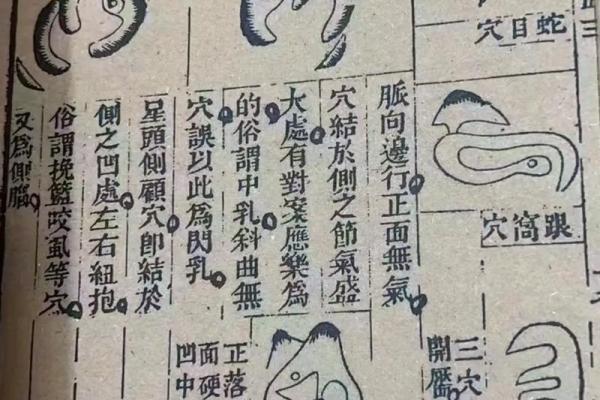 三
蛇目穴
跟窩穴
三穴
開
脈向邊行正面無氣
穴結於側之節氣盛
大處有對案應樂為
的俗謂中乳斜曲無
穴誤以此為閃乳
星頭側顧穴即結於
側之凹處左右紐抱
俗謂挽籃咬虱等穴
又為側腦
正落
面硬
凹中